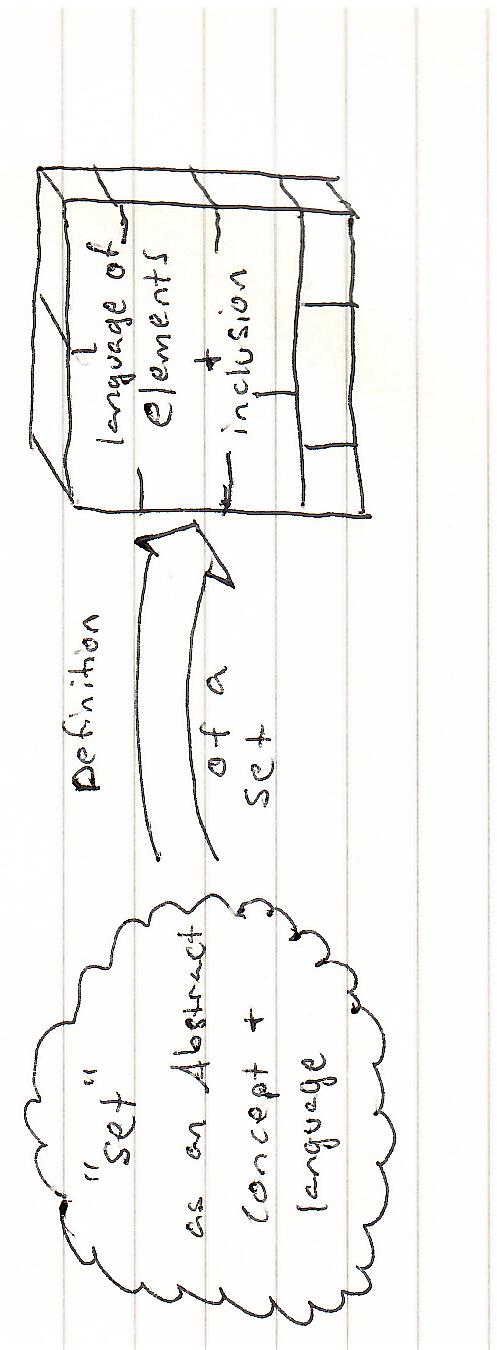 "set"
as an Abstract
concept +
language
Definition
of a
set
language of
elements
+
inclusion